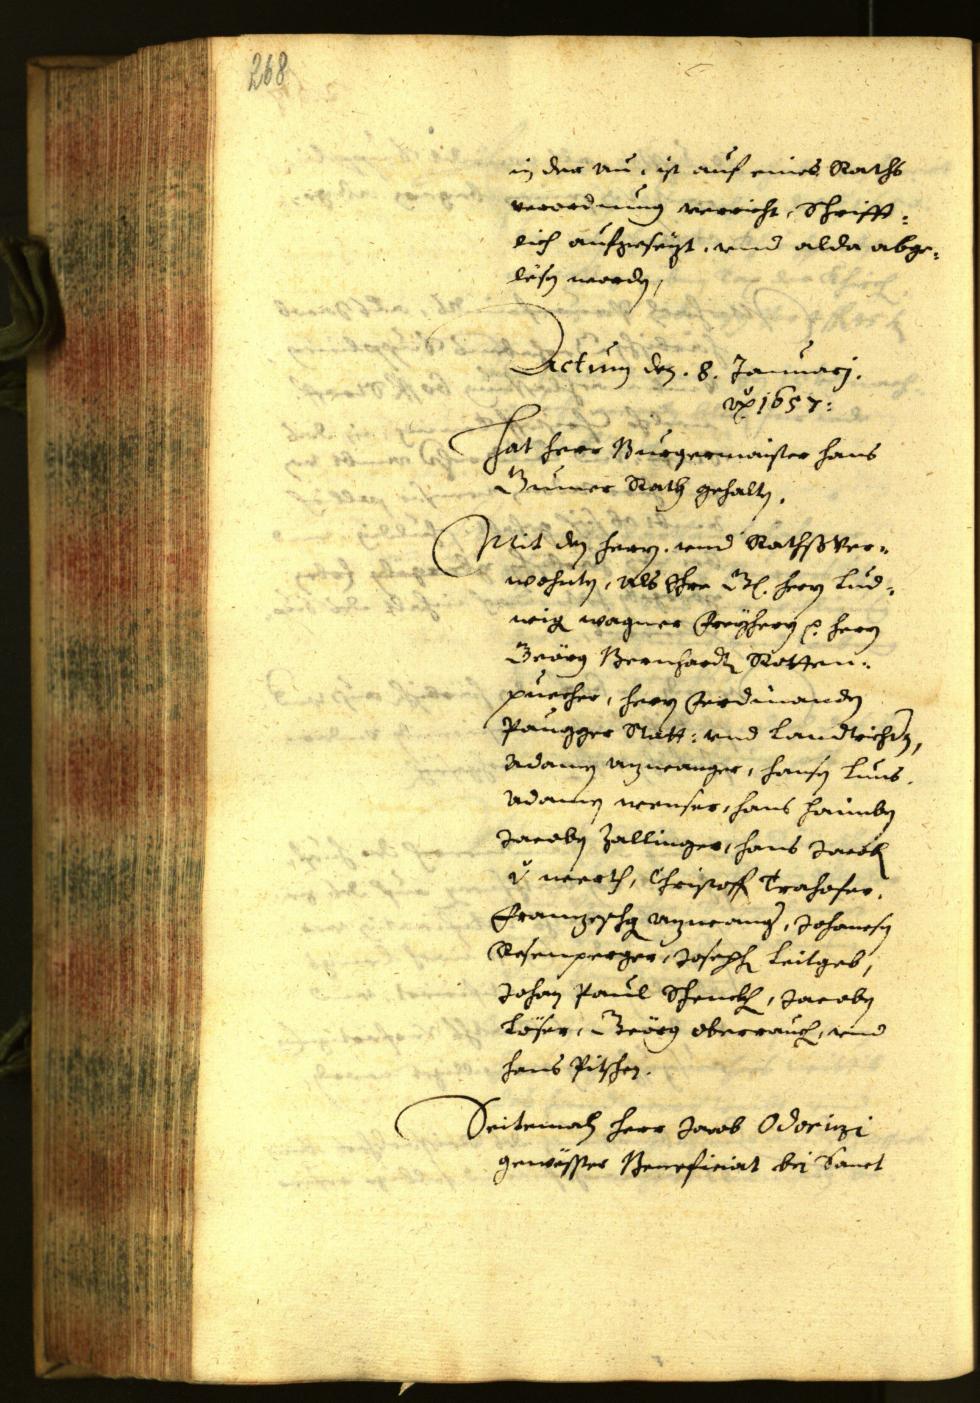 268
in der Au, ist auf eines Raths
verordnung verricht, Schrifft-
lich aufgesezt, und alda abge-
lesen worden,
Actum den 8. Januarj.
1657:
Hat herr Burgermaister Hans
Gumer Rath gehalten.
Mit den herrn und Rathßver-
wohnten, als Ihre G. herrn Lud-
wig Wagner Freyherrn herrn
Geörg Bernhardt Rotten-
puecher, herrn Ferdinanden
Paugger Statt: und Landtrichter,
Adamen Azwanger, Hansen Luns.
Adamen Weenser, Hans Haimbn
Jacoben Zallinger, Hans Jacob
v. Werth, Christoff Trahofer,
Franzischg Azwang, Johannesen
Rosenperger, Joseph Leitgeb,
Johan Paul Schenckh, Jacoben
Löser, Geörg Oberrauch, und
Hans Pitschen.
Seitemalen herr Jacob Odorizi
gewesster Beneficiat bei Sanct